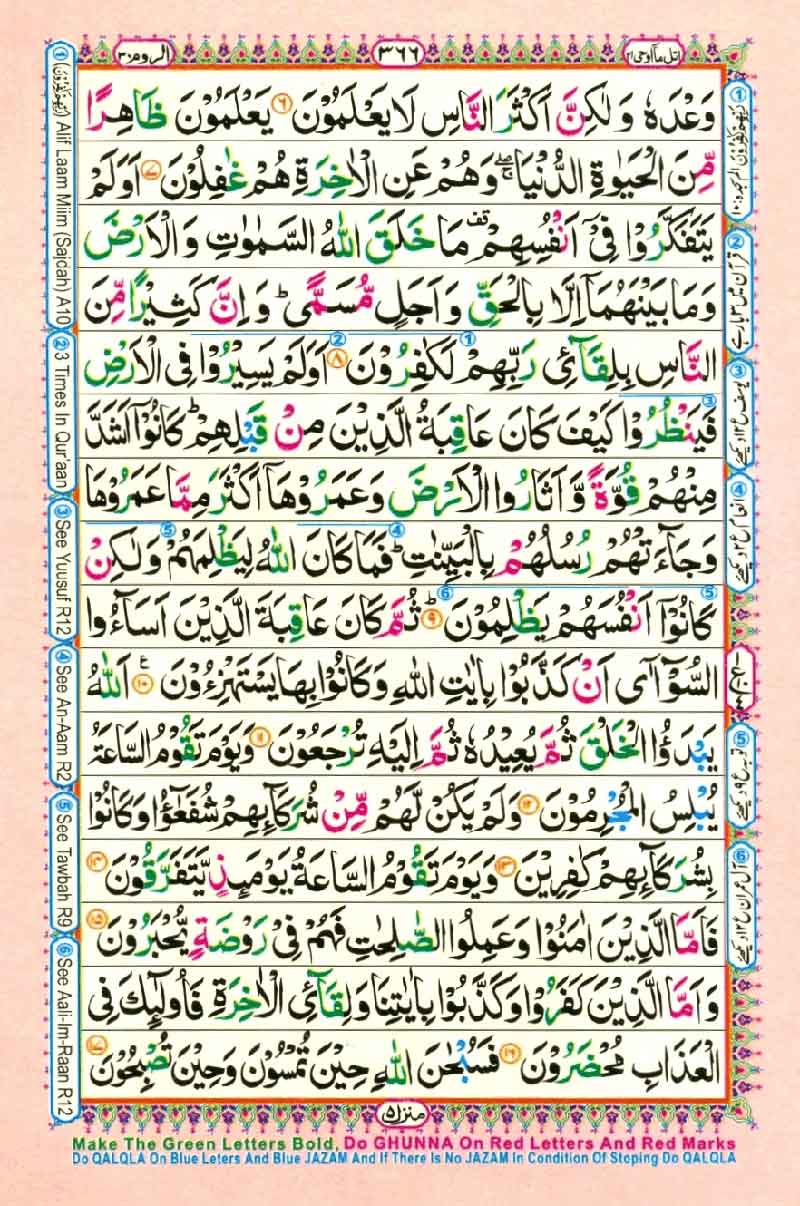 اتل ماۤ اوحی ۲۱
۳۶۶
الروم ۳۰
وَعْدَهٗ وَلٰكِنَّ اَكْثَرَ النَّاسِ لَا يَعْلَمُوْنَ ۶ يَعْلَمُوْنَ ظَاهِرًا
مِّنَ الْحَيٰوةِ الدُّنْيَا ۖۚ وَهُمْ عَنِ الْاٰخِرَةِ هُمْ غٰفِلُوْنَ ۷ اَوَلَمْ
يَتَفَكَّرُوْا فِيْۤ اَنْفُسِهِمْ ۫ مَا خَلَقَ اللّٰهُ السَّمٰوٰتِ وَالْاَرْضَ
وَمَا بَيْنَهُمَاۤ اِلَّا بِالْحَقِّ وَاَجَلٍ مُّسَمًّى ؕ وَاِنَّ كَثِيْرًا مِّنَ
النَّاسِ بِلِقَآئِ رَبِّهِمْ لَكٰفِرُوْنَ ۸ اَوَلَمْ يَسِيْرُوْا فِي الْاَرْضِ
فَيَنْظُرُوْا كَيْفَ كَانَ عَاقِبَةُ الَّذِيْنَ مِنْ قَبْلِهِمْ ؕ كَانُوْۤا اَشَدَّ
مِنْهُمْ قُوَّةً وَّاَثَارُوا الْاَرْضَ وَعَمَرُوْهَاۤ اَكْثَرَ مِمَّا عَمَرُوْهَا
وَجَآءَتْهُمْ رُسُلُهُمْ بِالْبَيِّنٰتِ ؕ فَمَا كَانَ اللّٰهُ لِيَظْلِمَهُمْ وَلٰكِنْ
كَانُوْۤا اَنْفُسَهُمْ يَظْلِمُوْنَ ؕ ۹ ثُمَّ كَانَ عَاقِبَةَ الَّذِيْنَ اَسَآءُوا
السُّوْٓاٰۤى اَنْ كَذَّبُوْا بِاٰيٰتِ اللّٰهِ وَكَانُوْا بِهَا يَسْتَهْزِءُوْنَ ۱۰ ع اَللّٰهُ
يَبْدَؤُا الْخَلْقَ ثُمَّ يُعِيْدُهٗ ثُمَّ اِلَيْهِ تُرْجَعُوْنَ ۱۱ وَيَوْمَ تَقُوْمُ السَّاعَةُ
يُبْلِسُ الْمُجْرِمُوْنَ ۱۲ وَلَمْ يَكُنْ لَّهُمْ مِّنْ شُرَكَآئِهِمْ شُفَعٰٓؤُا وَكَانُوْا
بِشُرَكَآئِهِمْ كٰفِرِيْنَ ۱۳ وَيَوْمَ تَقُوْمُ السَّاعَةُ يَوْمَئِذٍ يَّتَفَرَّقُوْنَ ۱۴
فَاَمَّا الَّذِيْنَ اٰمَنُوْا وَعَمِلُوا الصّٰلِحٰتِ فَهُمْ فِيْ رَوْضَةٍ يُّحْبَرُوْنَ ۱۵
وَاَمَّا الَّذِيْنَ كَفَرُوْا وَكَذَّبُوْا بِاٰيٰتِنَا وَلِقَآئِ الْاٰخِرَةِ فَاُولٰٓئِكَ فِي
الْعَذَابِ مُحْضَرُوْنَ ۱۶ فَسُبْحٰنَ اللّٰهِ حِيْنَ تُمْسُوْنَ وَحِيْنَ تُصْبِحُوْنَ ۱۷
منزل ۵
① Alif Laam Miim (Sajdah) A10
② 3 Times In Qur'aan
③ See Yuusuf R12
④ See An-Aam R2
⑤ See Tawbah R9
⑥ See Aali-Im-Raan R12
Make The Green Letters Bold, Do GHUNNA On Red Letters And Red Marks
Do QALQLA On Blue Leters And Blue JAZAM And If There Is No JAZAM In Condition Of Stoping Do QALQLA